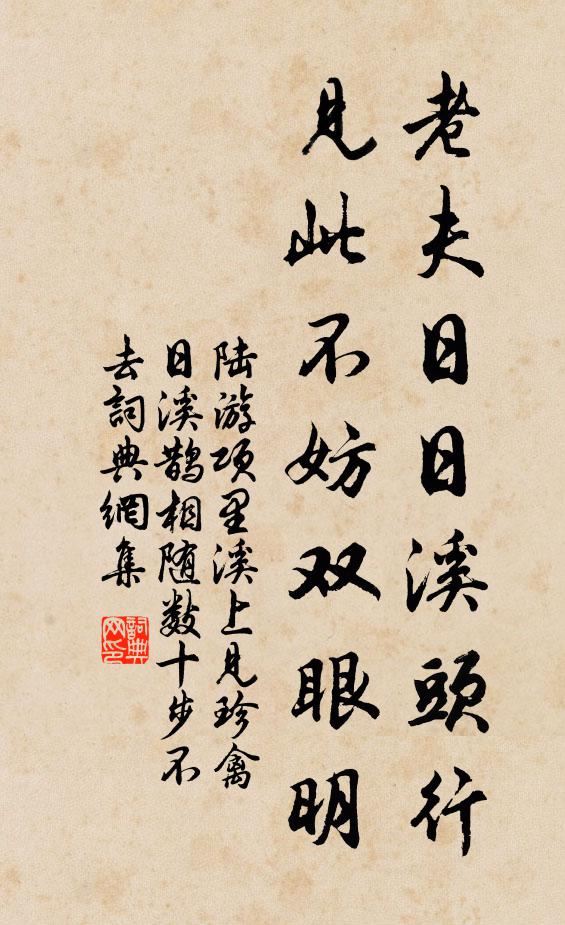 老夫日日溪頭行
見此不妨双眼明
陆游项里溪上見珍禽
日溪鹊相随数十步不
去詞典網集
詞典网印